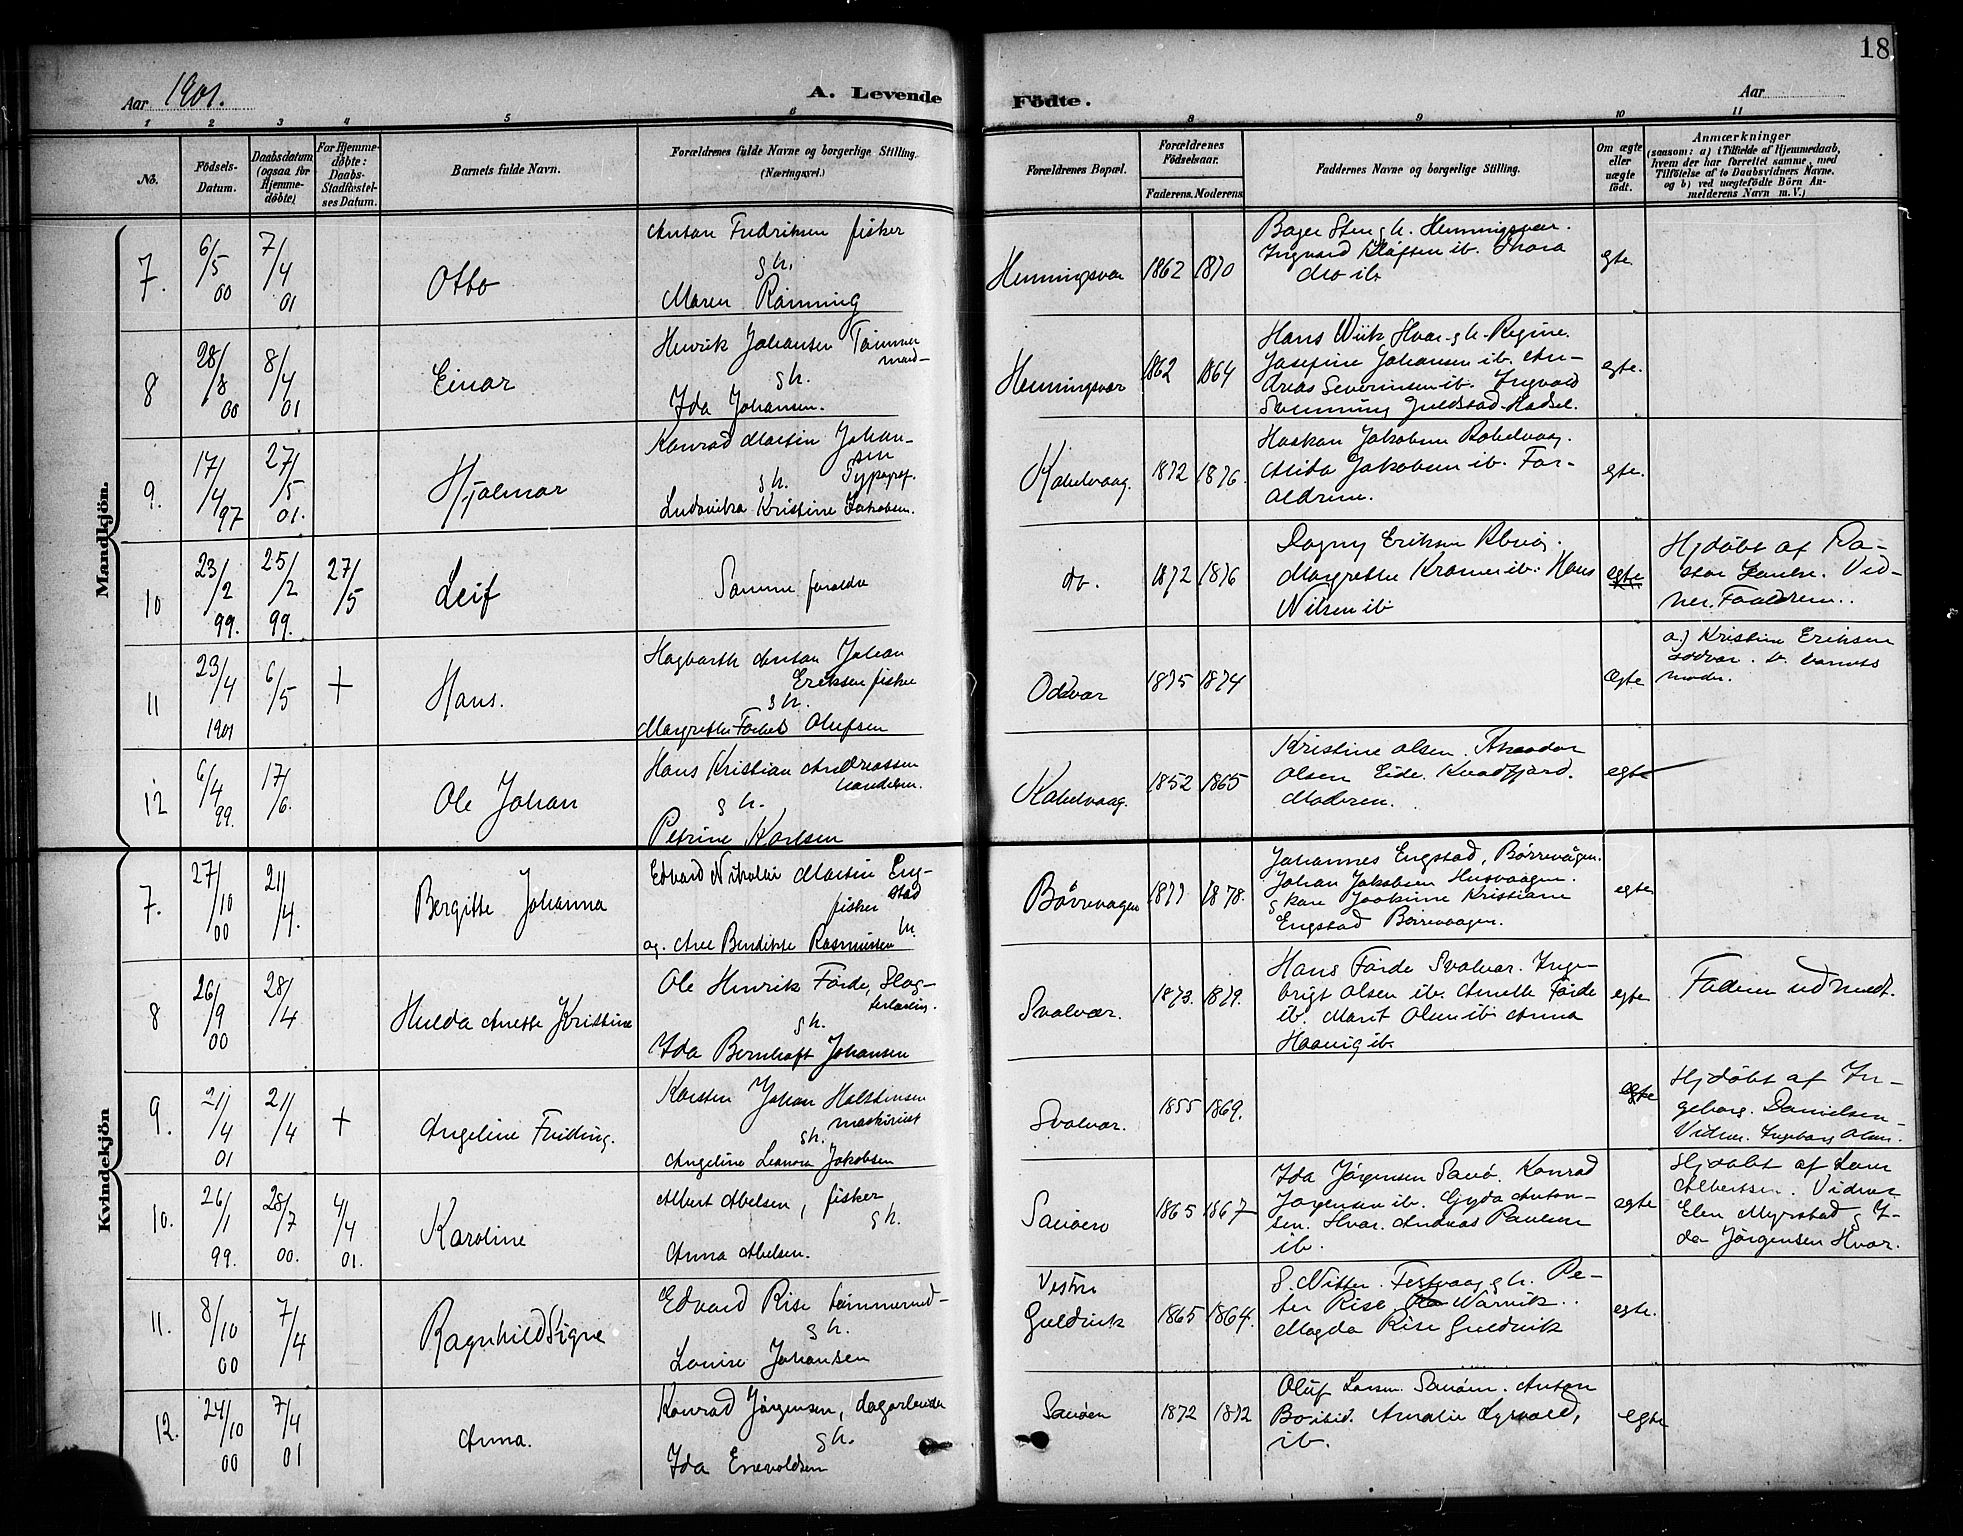 Aar 1901.
A. Levende
Födte.
Aar
18
1 2 3 4 5 6 8 9 10 11
No.
Födsels-
Datum.
Daabsdatum
(ogsaa for
Hjemme-
döbte)
For Hjemme-
döbte:
Daabs-
Stadfæstel-
ses Datum.
Barnets fulde Navn.
Forældrenes fulde Navne og borgerlige Stilling.
(Næringsvei.)
Forældrenes Bopæl.
Forældrenes
Födselsaar.
Faderens. Moderens.
Faddernes Navne og borgerlige Stilling.
Om ægte
eller
uægte
födt.
Anmærkninger
(saasom: a) i Tilfælde af Hjemmedaab,
hvem der har forrettet samme, med
Tilföielse af to Daabsvidners Navne.
og b) ved uægtefödte Börn An-
melderens Navn m. V.)
Mandkjön.
7.
6/5
00
7/4
01
Otto
Anton Fredriksen fisker
g h.
Maren Rönning
Henningsvær
1862 1870
Henningsvær.
Ingvard ib.
do ib.
egte.
8
28/8
00
8/4
01
Einar
Henrik Johansen Tömmer
mand-
g h.
Ida Johansen.
Henningsvær
1862 1864
Hans Wiik Hvær. g h. Regine
Josefine Johansen ib. An-
dreas Severinsen ib. Ingvald
Svenning Guldstad Hadsel.
egte.
9.
17/4
97
27/5
01.
Hjalmar
Konrad Martin Johan-
sen
g h. Typogref.
Kristine Jakobsen.
Kabelvaag.
1872 1876.
Haakon Jakobsen Kabelvaag.
Jakobsen ib. For-
ældrene.
egte.
10
23/2
99.
25/2
99.
27/5
Leif
Samme foreldre
do.
1872 1876
Dagny Eriksen
Margrethe Kramer ib. Hans
Nilsen ib
egte
Hjdöbt af Pa-
stor Vid-
ner. Forældrene..
11
23/4
1901
6/5
+
Hans.
Hagbarth Anton Johan
Eriksen fisker
g h.
Margrethe Olufsen
Odvær
1875 1874
Ægte
a.) Kristine Eriksen
Odvær. b. barnets
moder.
12
6/4
99.
17/6.
Ole Johan
Hans Kristian Andreassen
handelsm.
g h.
Petrine Karlsen
Kabelvaag.
1852 1865
Kristine Olsen. Theodor
Olsen Eide. Kvædfjord.
Moderen.
egte
Kvindekjön
7.
27/10
00
21/4.
Bergitte Johanna
Edvard Nikolai Martin Eng-
stad
fisker
og. Ane Bendikte Rasmussen h.
Børrevaagen
1877 1878.
Johannes Engstad, Børrevågen.
Johan Jakobsen Husvaagen.
g kone Joakime Kristiane
Engstad Börrevaagen.
egte
8
26/9
00
28/4
Hulda Anette Kristine
Ole Henrik Förde, Slag-
terlærling.
g h.
Ida Bernhoft Johansen
Svolvær.
1873. 1879.
Hans Förde Svolvær. Inge-
brigt Olsen ib. Anette Förde
ib. Marit Olsen ib. Anna
Haavig ib.
egte
Faderen udmeldt.
9.
21/4
01
21/4
+
Angeline Fridling.
Karsten Johan Halstensen
maskinist
g h.
Angeline Leonora Jakobsen
Svolvær.
1855 1869.
egte
Hjdöbt af In-
geborg. Danielsen-
Vidner. Ingeborg Olsen.
10.
26/1
99.
28/7
00.
4/4
01.
Karoline
Albert Abelsen, fisker
g h.
Anna Abelsen.
Sauöen
1865 1867
Ida Jørgensen Sauö. Konrad
Jørgensen ib. Gyda Anton-
sen. Hvær. Andreas Paulsen
ib.
egte
Hjdøbt af Lars
Albertsen. Vidner
Elen Myrstad g I-
da Jørgensen Hvær.
11.
8/10
00
7/4
Ragnhild Signe
Edvard Rise tömmermd-
g h.
Louise Johansen
Vestre
Guldvik
1865 1864.
Festvaag g h. Pe-
ter Rise. Varvik..
Magda Rise Guldvik
egte.
12.
24/10
00
7/4
01
Anna.
Konrad Jörgensen, dagarbeider
g h.
Ida Enevoldsen
Sauöen
1872 1872
Oluf Larsen. Sauöen. Anton
Amalie
ib.
egte